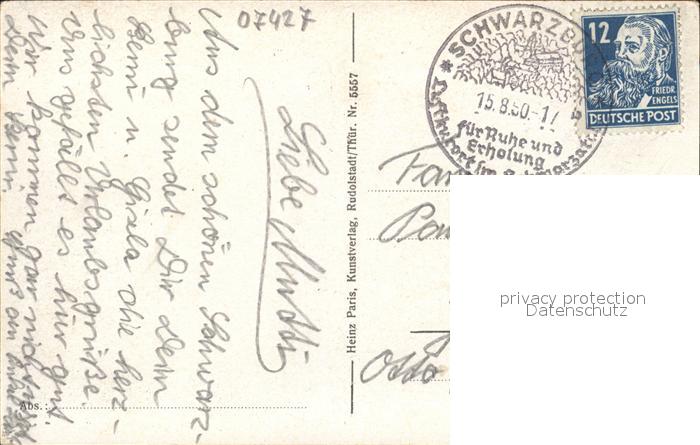 07427
Liebe Mutti
Aus dem schönen Schwarz-
burg sendet Dir Dein
Heini u. Gisela die herz-
lichsten Urlaubsgrüße.
Uns gefällt es hier gut
Wir kommen gar nicht
Dein Heini
Abs.:
Heinz Paris, Kunstverlag, Rudolstadt/Thür. Nr. 5557
* SCHWARZBU
15.8.50.-17
für Ruhe und
Erholung
12
FRIEDR.
ENGELS
DEUTSCHE POST
Otto
privacy protection
Datenschutz